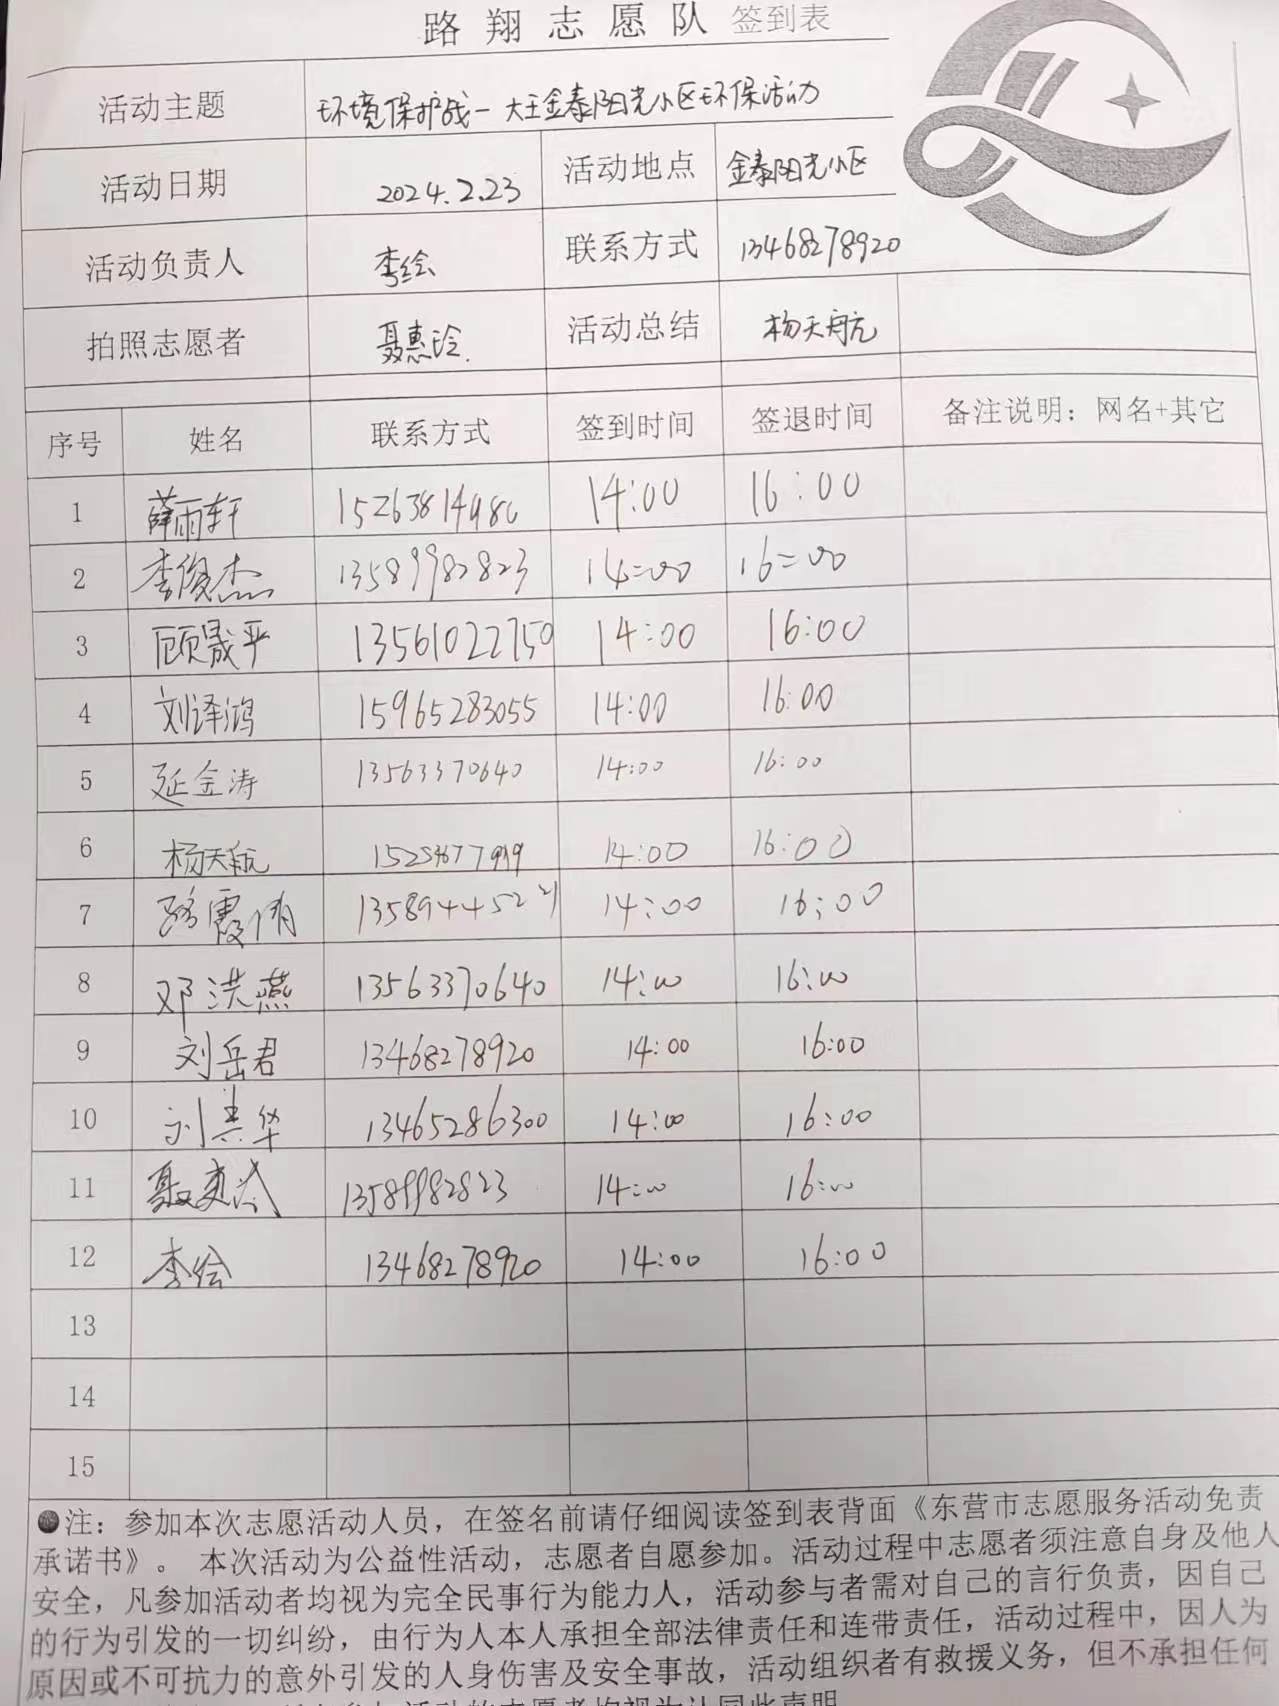 路翔志愿队 签到表
活动主题 环境保护战—大王金泰阳光小区环保活动
活动日期 2024.2.23 活动地点 金泰阳光小区
活动负责人 李绘 联系方式 13468278920
拍照志愿者 聂惠玲 活动总结 杨天航
序号 姓名 联系方式 签到时间 签退时间 备注说明：网名+其它
1 薛雨轩 14:00 16:00
2 李俊杰 13589982823 14:00 16:00
3 顾晟平 13561022750 14:00 16:00
4 刘泽鸿 15965283055 14:00 16:00
5 延金涛 13563370640 14:00 16:00
6 杨天航 14:00 16:00
7 路霞倩 14:00 16:00
8 邓洪燕 13563370640 14:00 16:00
9 刘岳君 13468278920 14:00 16:00
10 13465286300 14:00 16:00
11 13589982823 14:00 16:00
12 李绘 13468278920 14:00 16:00
13
14
15
●注：参加本次志愿活动人员，在签名前请仔细阅读签到表背面《东营市志愿服务活动免责
承诺书》。 本次活动为公益性活动，志愿者自愿参加。活动过程中志愿者须注意自身及他人
安全，凡参加活动者均视为完全民事行为能力人，活动参与者需对自己的言行负责，因自己
的行为引发的一切纠纷，由行为人本人承担全部法律责任和连带责任，活动过程中，因人为
原因或不可抗力的意外引发的人身伤害及安全事故，活动组织者有救援义务，但不承担任何
参加活动的志愿者均视为认同此声明